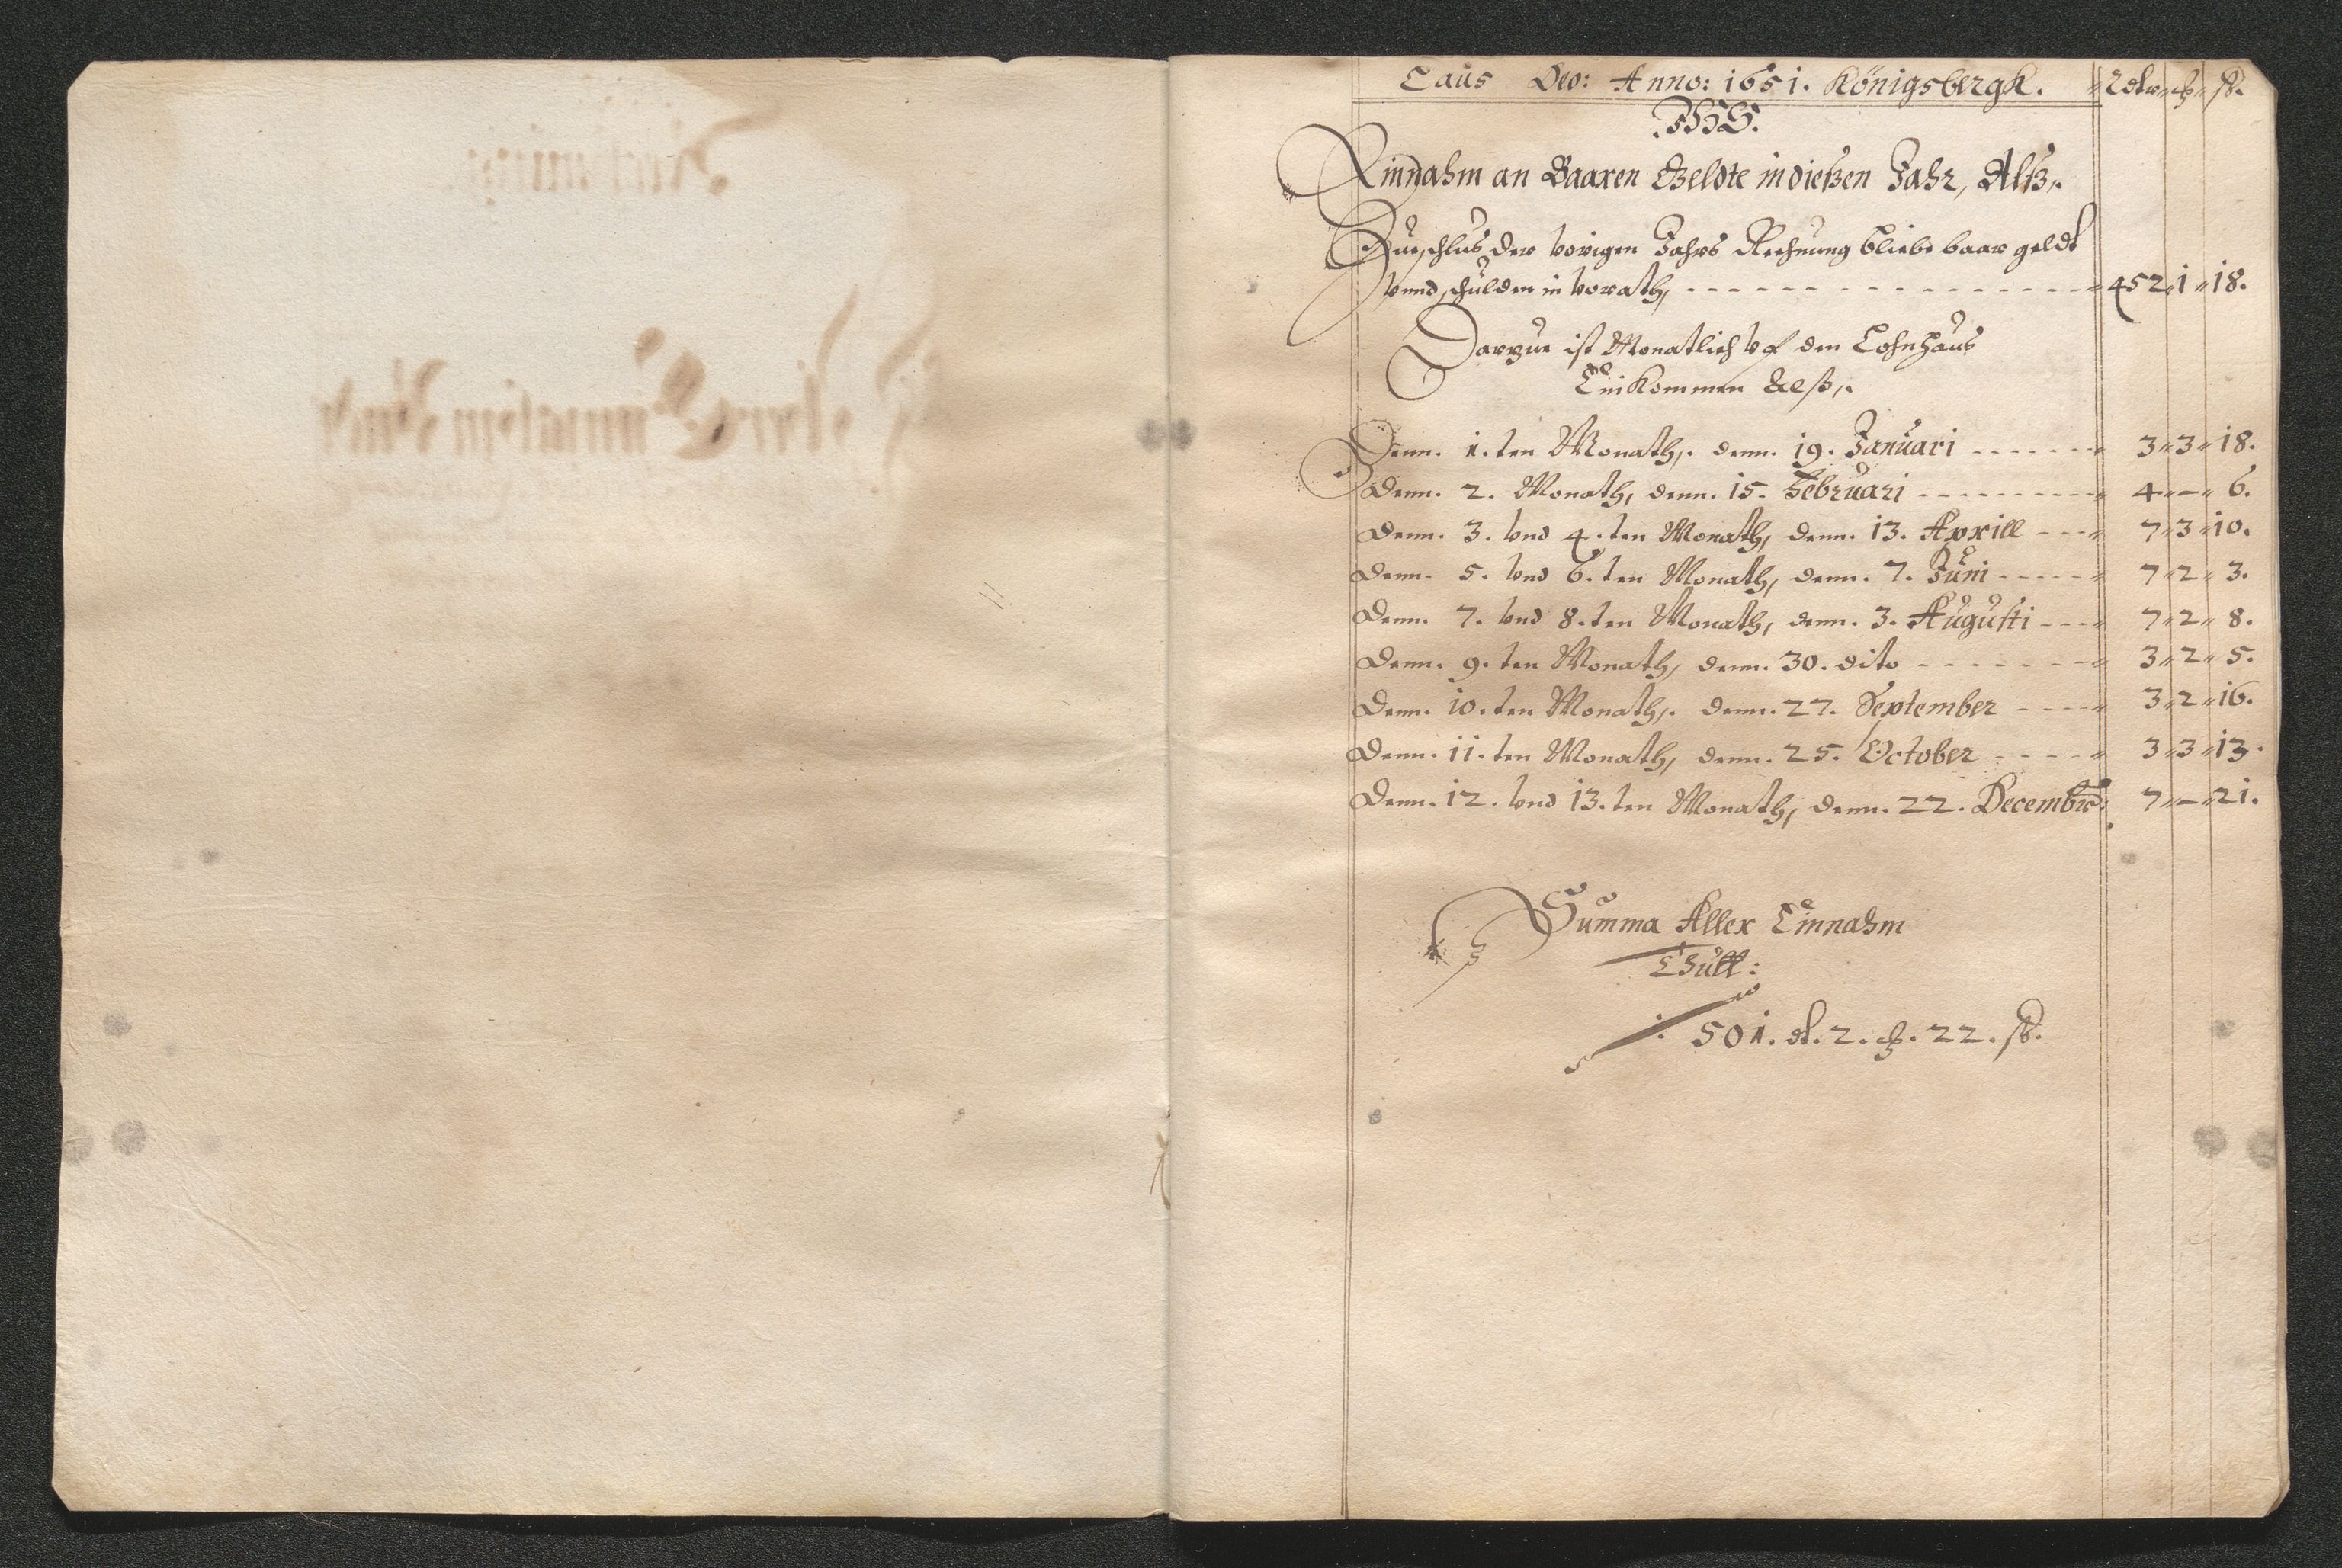 Laus Deo: Anno: 1651. Königsbergk.
Einnahm an Baaren Geldte in dießen Jahr, Alß,.
Zueschlus der vorigen Jahrs Rechnung bliebe baar geldt
vnnd schulden in vorath, 452 " 1 " 18.
Darzue ist Monatlich vf dem Lohnhaus
Einkommen Alß,.
Denn. 1. ten Monath,. denn. 19. Januari 3 " 3 " 18.
Denn. 2. Monath, denn. 15. Februari 4 " — " 6.
Denn. 3. vnd 4. ten Monath, denn. 13. Aprill 7 " 3 " 10.
Denn. 5. vnd 6. ten Monath, denn. 7. Juni 7 " 2 " 3.
Denn. 7. vnd 8. ten Monath, denn. 3. Augusti 7 " 2 " 8.
Denn. 9. ten Monath, denn. 30. dito 3 " 2 " 5.
Denn. 10. ten Monath,. denn. 27. September 3 " 2 " 16.
Denn. 11. ten Monath, denn. 25. October 3 " 3 " 13.
Denn. 12. vnd 13. ten Monath, denn. 22. Decembr: 7 " — " 21.
Summa Aller Einnahm
Thutt:
501. dt. 2. ß. 22. ß.